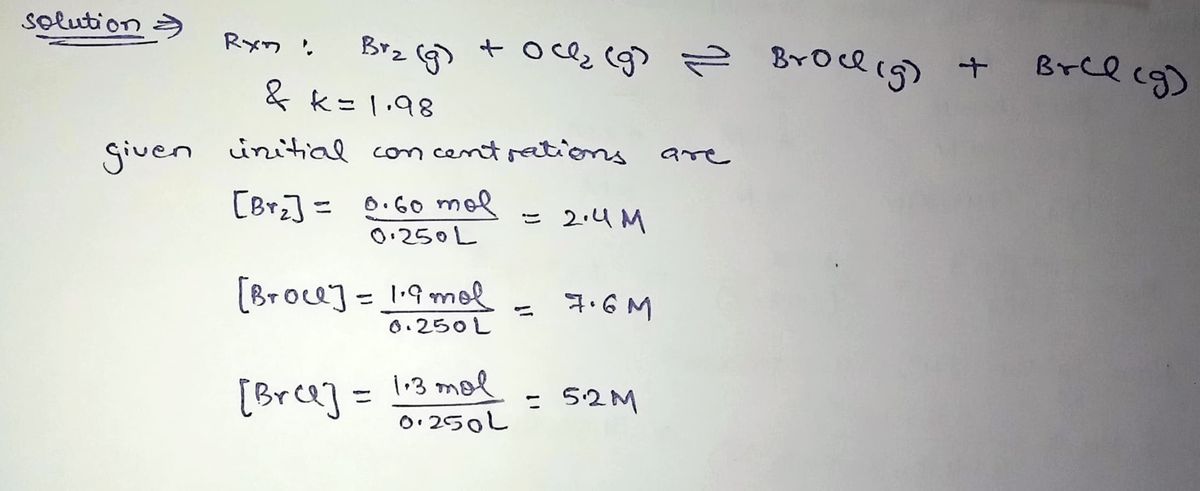 solution ⇒
Rxn : Br₂ (g) + OCl₂ (g) ⇌ BrOCl (g) + BrCl (g)
& k = 1.98
given initial concentrations are
[Br₂] = 0.60 mol / 0.250L = 2.4 M
[BrOCl] = 1.9 mol / 0.250L = 7.6 M
[BrCl] = 1.3 mol / 0.250L = 5.2 M